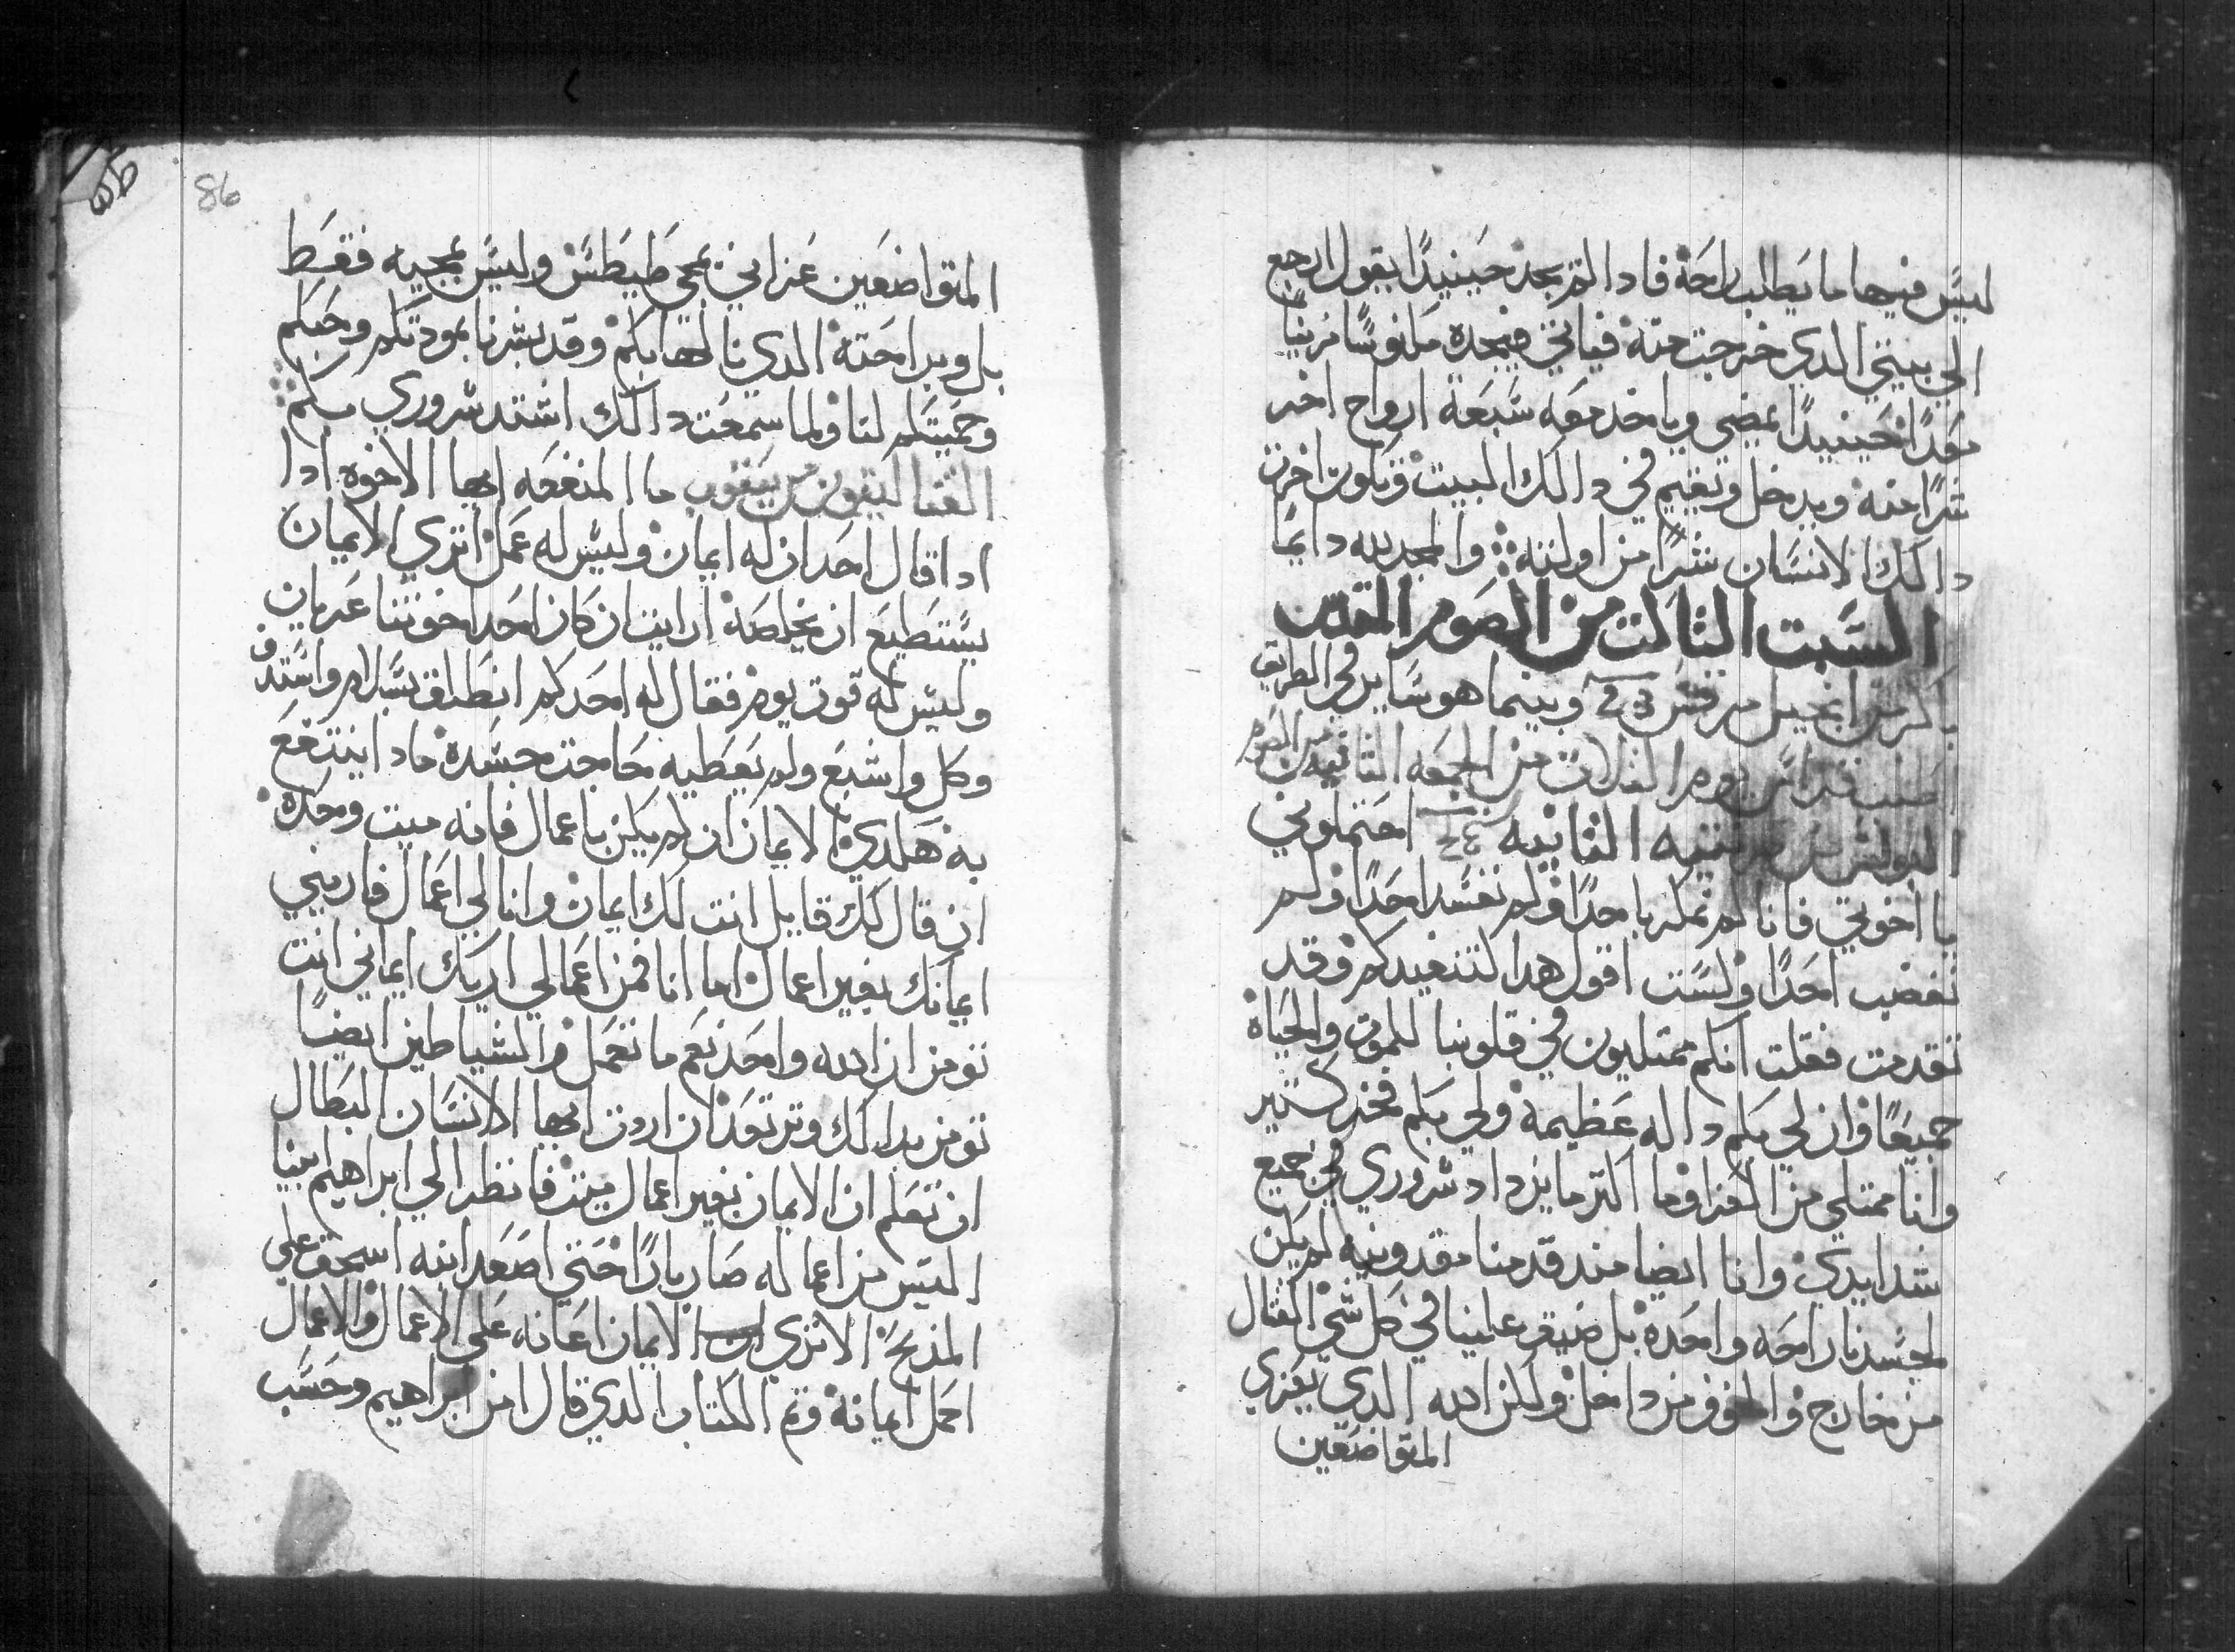 ليس فيها ما يطلب راحة فادا لم يجد حينيدًا يقول ارجع
الي بيتي الدي خرجت منه فياتي فيجده مكنوسًا مزينًا
معدًا حينيدًا يمضي وياخد معه سبعة ارواح اخر
شرًا منه ويدخل وتقيم في دالك البيت وتكون اخرت
دالك الانسان شرًا من اولته والمجد لله دايمًا
السبت الثالث من الصوم المقدس
باكر من انجيل مرقس وبينما هو ساير في الطريق
اطلب قداس يوم الثلاث من الجمعه الثانيه من الصوم
البولس من قرنتيه الثانيه احتملوني
يا اخوتي فانا لم نمكر باحدًا ولم نفسد احدًا ولم
نغضب احدًا ولست اقول هدا لتنفيدكم وقد
تقدمت فقلت انكم ممتليون في قلوبنا للموت والحياة
جميعًا وان لي بكم داله عظيمة ولي بكم فخر كتير
وانا ممتلي من العزا وما اكتر ما يزداد سروري في جميع
شدايدي وانا ايضا مند قدمنا مقدونيه لم يكن
لجسدنا راحه واحده بل ضيق علينا في كل شي القتال
من خارج والخوف من داخل ولكن الله الدي يعزي
المتواضعين
86
المتواضعين عزاني بمجي طيطس وليس بمجيه فقط
بل وبراحته الدي نالها بكم وقد بشرنا بمودتكم وحبكم
وحميتكم لنا ولما سمعت دالك اشتد سروري بكم
القتاليقون من يعقوب ما المنفعه ايها الاخوه ادا
ادا قال احد ان له ايمان وليس له عمل اتري الايمان
يستطيع ان يخلصه ارايت ان كان احد اخوتنا عريان
وليس له قوت يوم فقال له احدكم انطلق بسلام واستدف
وكل واشبع ولم يعطيه حاجت جسده مادا ينتفع
به هكدي الايمان ان لم يكن باعمال فانه ميت وحده
ان قال لك قايل انت لك ايمان وانا لي اعمال فاريني
ايمانك بغير اعمال اما انا فمن اعمالي اريك ايماني انت
تومن ان الله واحد نعم ما تعمل والشياطين ايضًا
تومن بدالك وترتعد ان اردت ايها الانسان البطال
ان تعلم ان الايمان بغير اعمال ميت فانظر الي ابراهيم ابينا
اليس من اعماله صار بارًا حتي اصعد ابنه اسحق علي
المذبح الا تري ان الايمان اعانه علي الاعمال والاعمال
اكمل ايمانه وتم الكتاب الدي قال امن ابراهيم وحسب